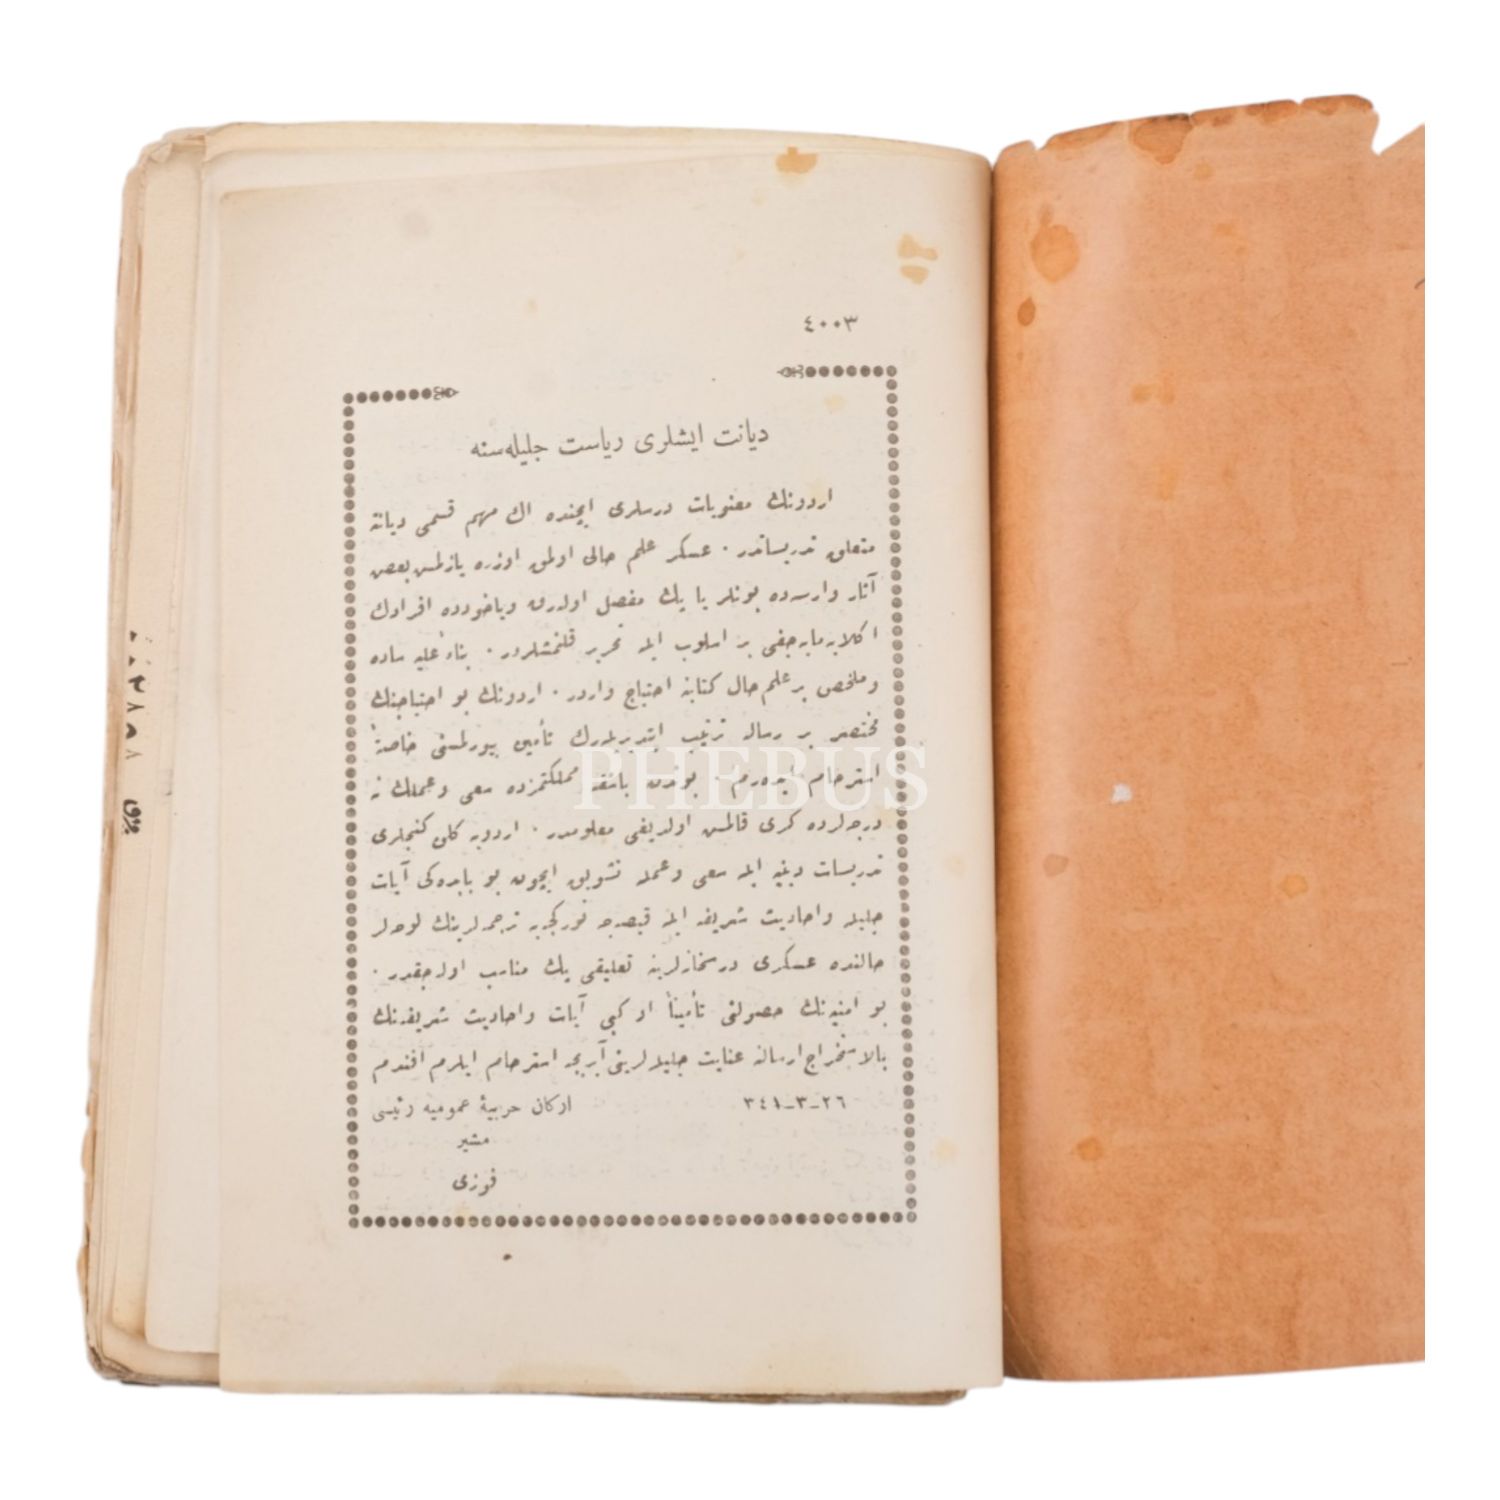 ٤٠٠٣
ديانت ايشلرى رياست جليله‌سنه
اردونك معنويات درسلرى ايچنده اك مهم قسمى ديانته
متعلق تدريساتدر . عسكر علم حالى اولمق اوزره يازلمش بعض
آثار وارسه‌ده بونلر يا پك مفصل اوله‌رق وياخودده افرادك
اكلايه‌مايه‌جغى بر اسلوب ايله تحرير قلنمشلردر . بناءً عليه ساده
وملخص بر علم حال كتابنه احتياج واردر . اردونك بو احتياجنك
مختصر بر رساله ترتيب ايتديريله‌رك تأمين بيورلمسنى خاصةً
استرحام ايده‌رم . بوندن باشقه مملكتمزده سعى وعملك نه
درجه‌لرده كرى قالمش اولديغى معلومدر . اردويه كلن كنجلرى
تدريسات دينيه ايله سعى وعمله تشويق ايچون بو بابده‌كى آيات
جليله واحاديث شريفه ايله قيصه‌جه توركجه ترجمه‌لرينك لوحه‌لر
حالنده عسكرى درسخانه‌لرينه تعليقى پك مناسب اوله‌جقدر .
بو امنيه‌نك حصولنى تأميناً او كبى آيات واحاديث شريفه‌نك
بالاستخراج ارسالنه عنايت جليله‌لرينى آيريجه استرحام ايلرم افندم
٢٦-٣-٣٤١
اركان حربيهٔ عموميه رئيسى
مشير
فوزى
PHEBUS